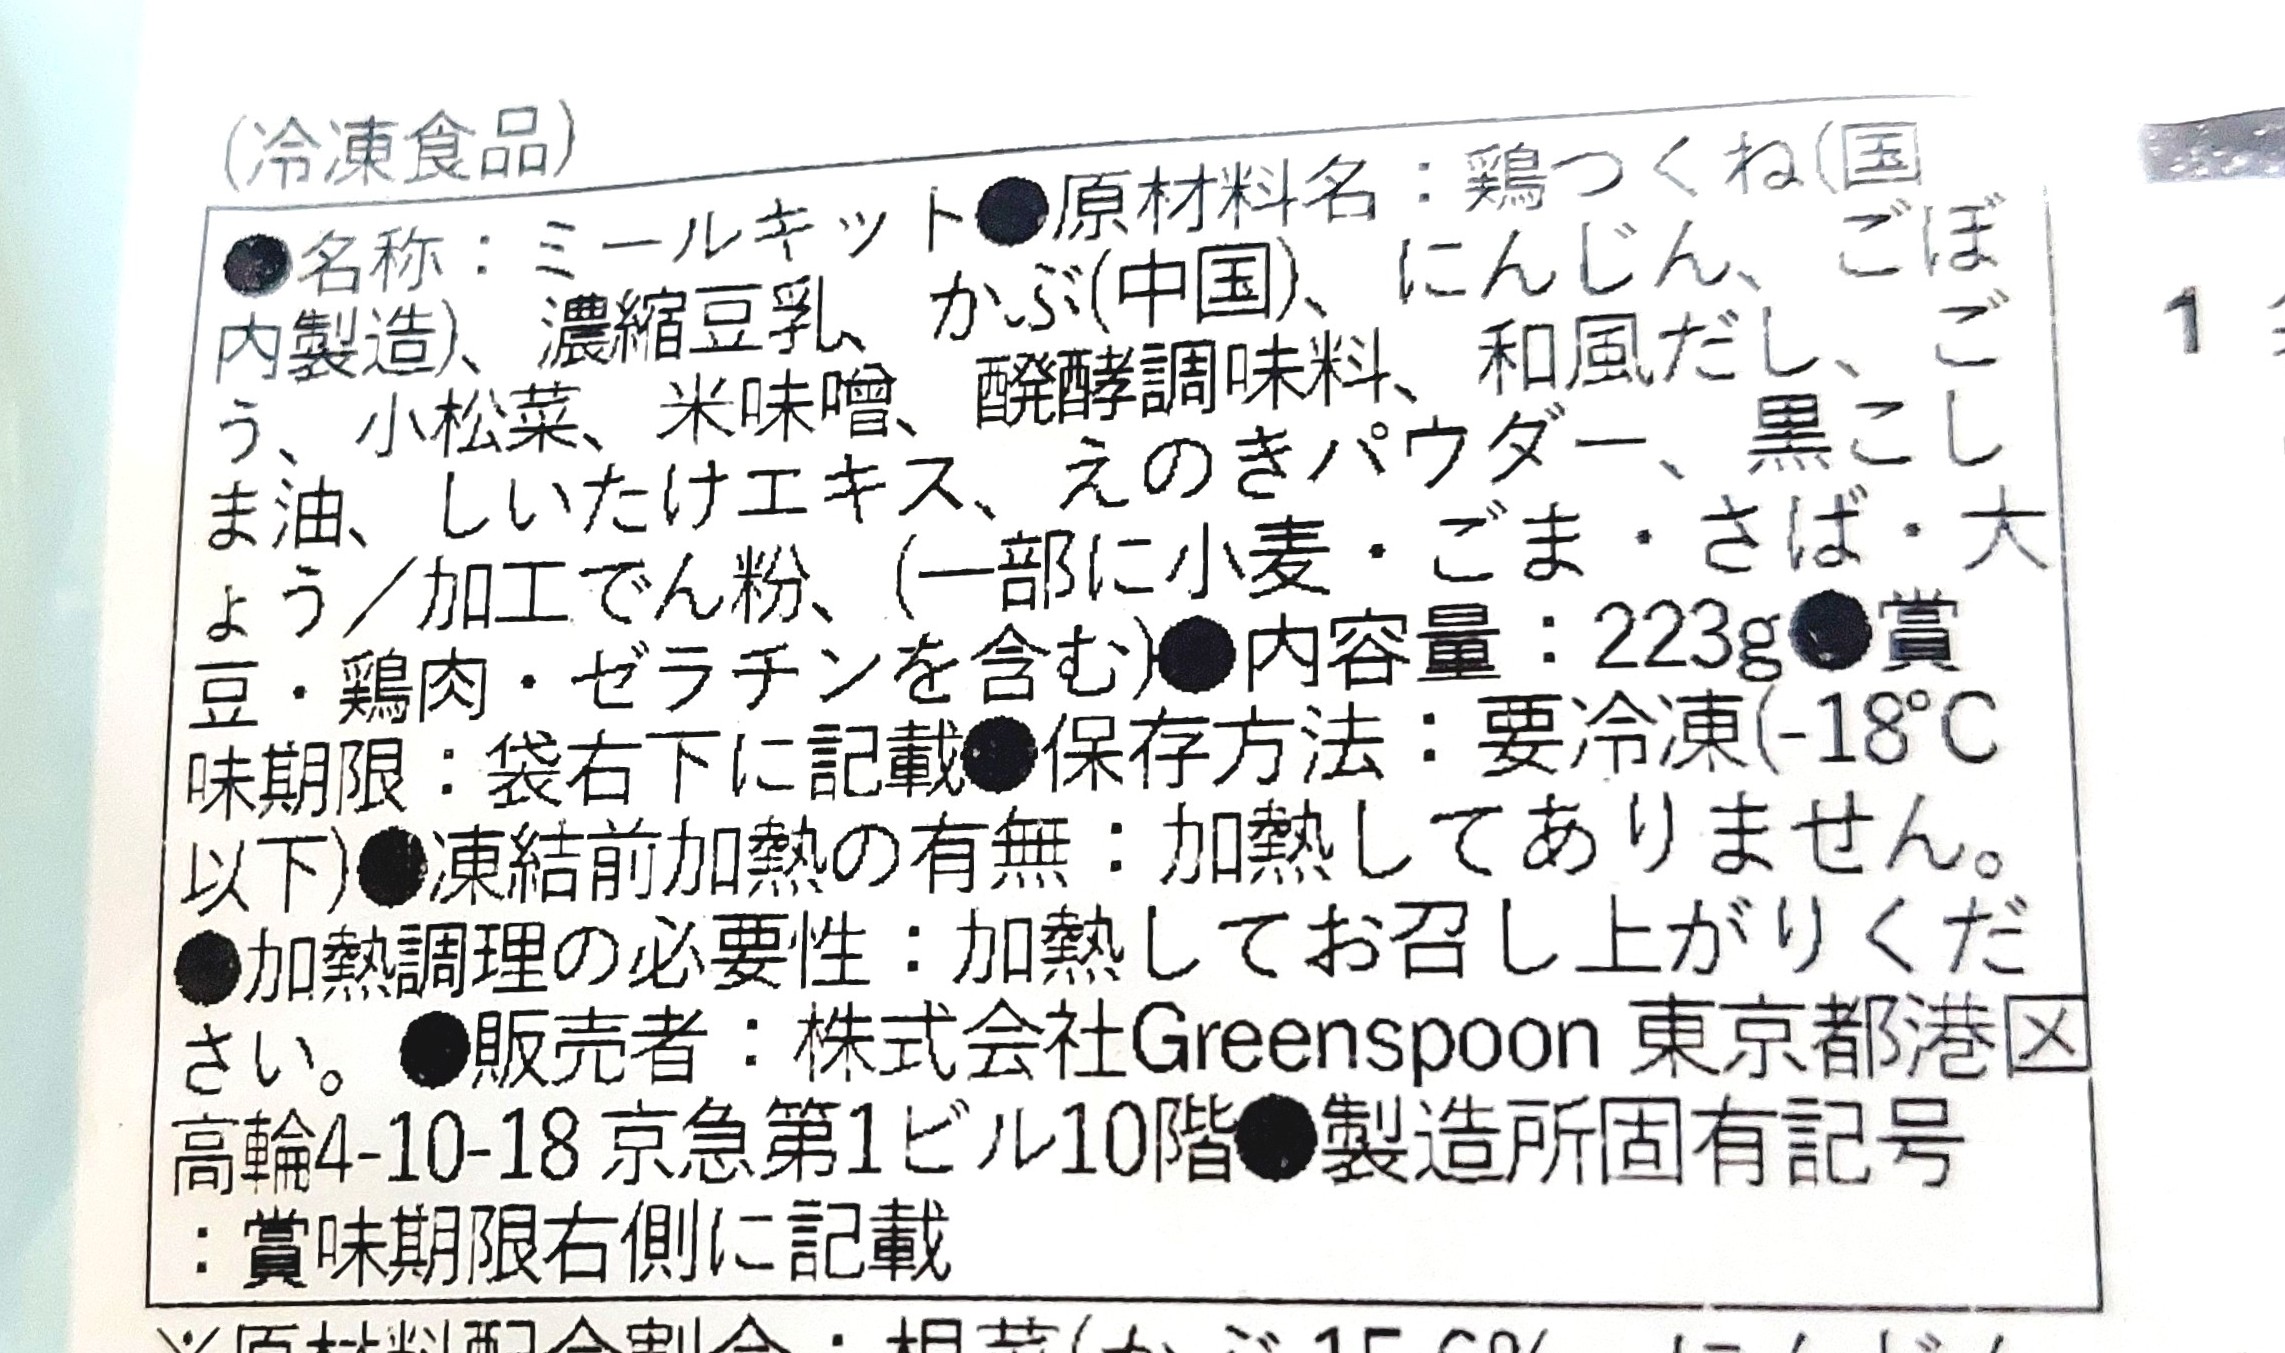 (冷凍食品)
●名称：ミールキット●原材料名：鶏つくね(国
内製造)、濃縮豆乳、かぶ(中国)、にんじん、ごぼ
う、小松菜、米味噌、醗酵調味料、和風だし、ご
ま油、しいたけエキス、えのきパウダー、黒こし
ょう／加工でん粉、(一部に小麦・ごま・さば・大
豆・鶏肉・ゼラチンを含む)●内容量：223g●賞
味期限：袋右下に記載●保存方法：要冷凍(-18℃
以下)●凍結前加熱の有無：加熱してありません。
●加熱調理の必要性：加熱してお召し上がりくだ
さい。●販売者：株式会社Greenspoon 東京都港区
高輪4-10-18 京急第1ビル10階●製造所固有記号
：賞味期限右側に記載
※原材料配合割合：根菜(かぶ 15.6%、にんじん
1